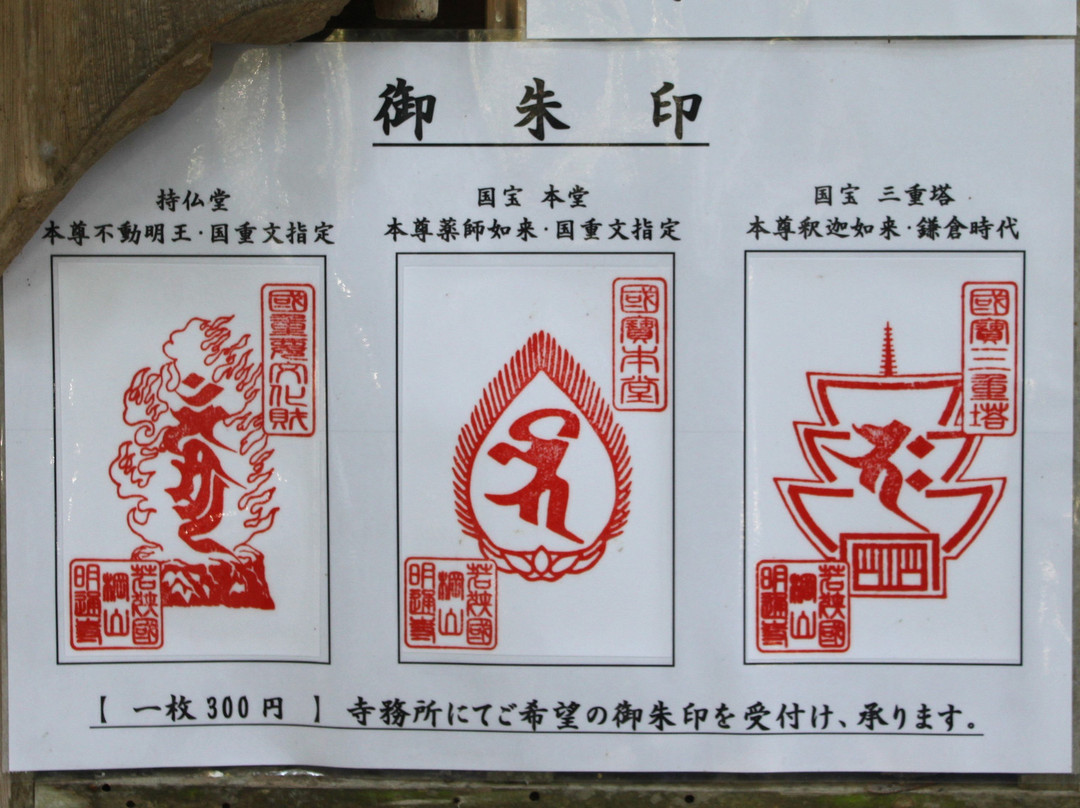 御 朱 印
持仏堂
本尊不動明王・国重文指定
國重要文化財
若狭國
棡山
明通寺
国宝 本堂
本尊薬師如来・国重文指定
國寶本堂
若狭國
棡山
明通寺
国宝 三重塔
本尊釈迦如来・鎌倉時代
國寶三重塔
若狭國
棡山
明通寺
【 一枚300円 】 寺務所にてご希望の御朱印を受付け、承ります。